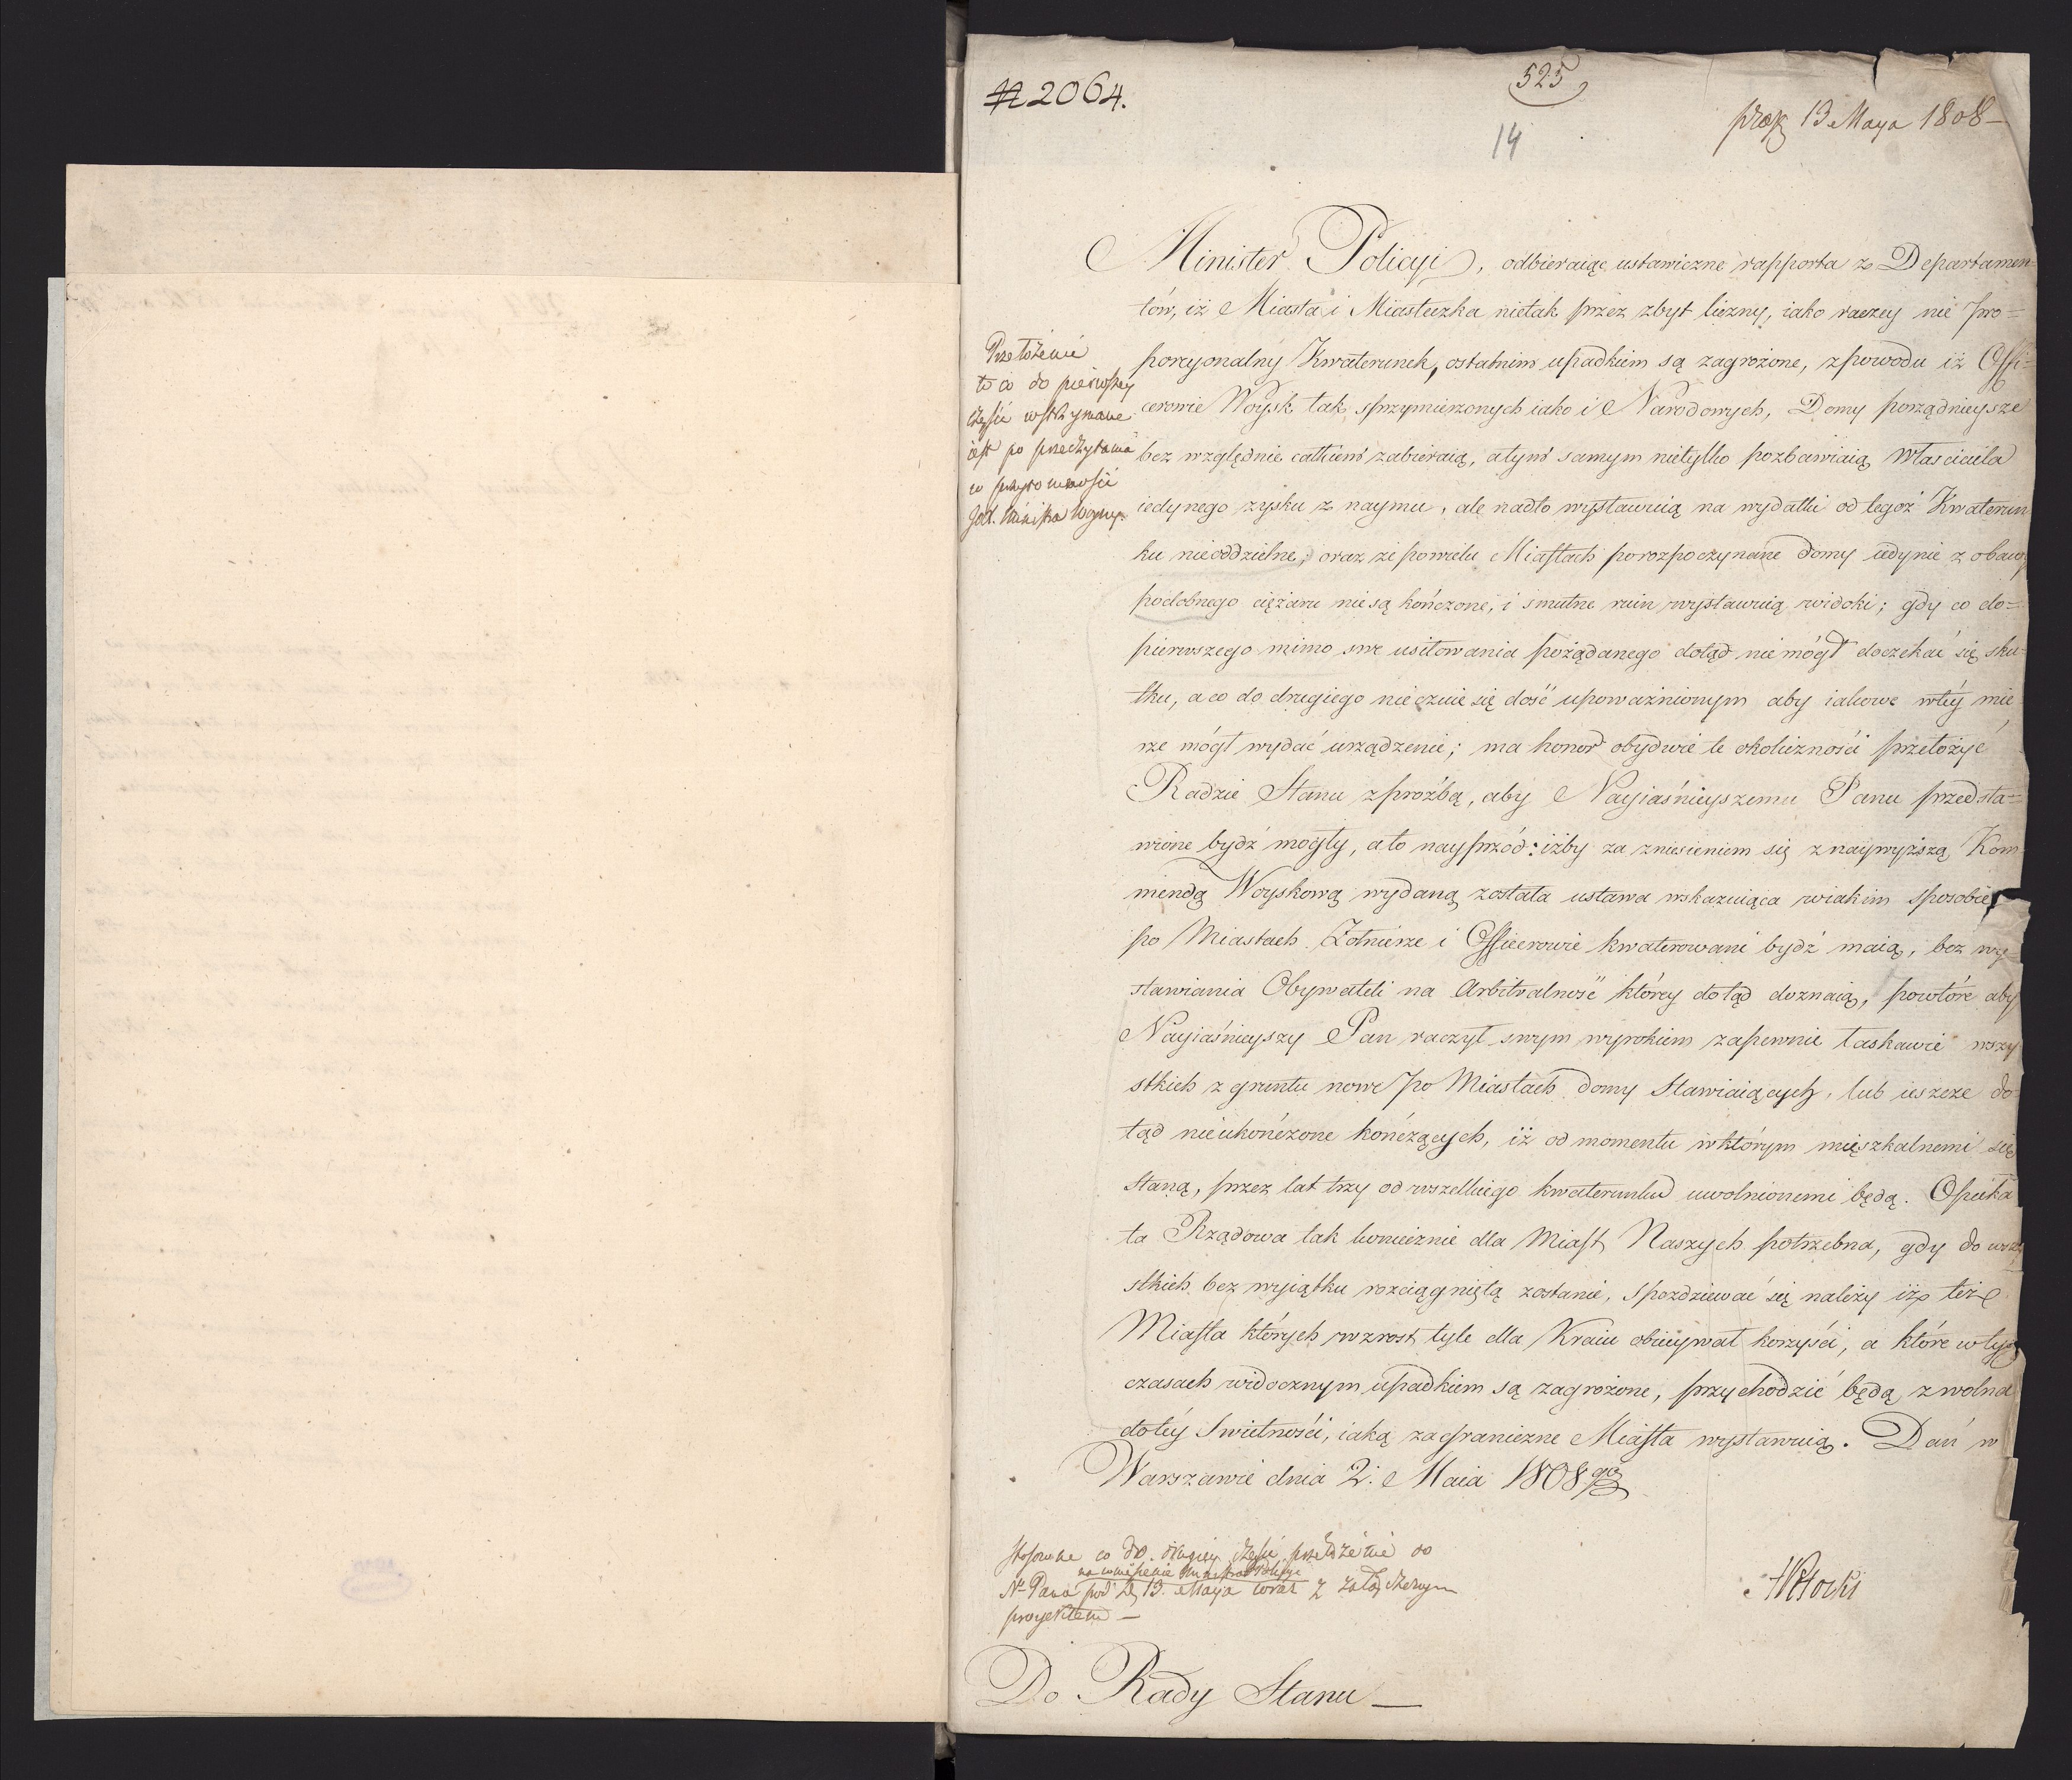 № 2064.
525
14
13 Maya 1808 —
Minister Policyi, odbieraiąc ustawiczne rapporta z Departamen=
tów, iż Miasta i Miasteczka nietak przez zbyt liczny, iako raczey nie pro=
porcyonalny Kwaterunek, ostatnim upadkiem są zagrożone, zpowodu iż Offi=
cerowie Woysk tak sprzymierzonych iako i Narodowych, Domy porządnieysze
bez względnie całkiem zabieraią, atym samym nietylko pozbawiaią Własciciela
iedynego zysku z naymu, ale nadto wystawuią na wydatki od tegoż Kwaterun
ku nieoddzielne; oraz że powielu Miastach porozpoczynane domy iedynie z obawy
podobnego ciężaru nie są kończone, i smutne ruin wystawuią widoki; gdy co do=
pierwszego mimo swe usiłowania pożądanego dotąd nie mógł doczekać się sku=
tku, a co do drugiego nie czuie się dość upoważnionym aby iakowe wtéy mie
rze mógł wydać urządzenie; ma honor obydwie te okoliczności przełożyć
Radzie Stanu zprozbą, aby Nayiaśnieyszemu Panu przedsta=
wione bydź mogły, ato nayprzód: iżby za zniesieniem się znaywyższą Kom
mendą Woyskową wydaną została ustawa wskazuiąca wiakim sposobie
po Miastach Żołnierze i Officerowie kwaterowani bydź maią, bez wy=
stawiania Obywateli na Arbitralność którey dotąd doznaią, powtóre aby
Nayiaśnieyszy Pan raczył swym wyrokiem zapewnić łaskawie wszy
stkich z gruntu nowe po Miastach domy Stawiaiących, lub ieszcze do=
tąd nieukończone kończących, iż od momentu wktórym mieszkalnemi się
staną, przez lat trzy od wszelkiego kwaterunku uwolnionemi będą. Opieka
ta Rządowa tak koniecznie dla Miast Naszych potrzebna, gdy do wszy
stkich bez wyiątku rozciągniętą zostanie, spozdziewać się należy iż też
Miasta których wzrost tyle dla Kraiu obiecywał korzyści, a które wtych
czasach widocznym upadkiem są zagrożone, przychodzić będą zwolna
do téy Swietności, iaką zagraniczne Miasta wystawuią. Dań w
Warszawie dnia 2. Maia 1808 go
Przełożenie
to co do pierwszey
części wstrzymane
iest po przeczytaniu
w przytomności
Ministra Woyny.
Stosowne co do drugiey części przełożenie do
na Ministra Policyi
N. Pana pod D. 13. Maya wraz z załączonym
proyektem —
Do Rady Stanu —